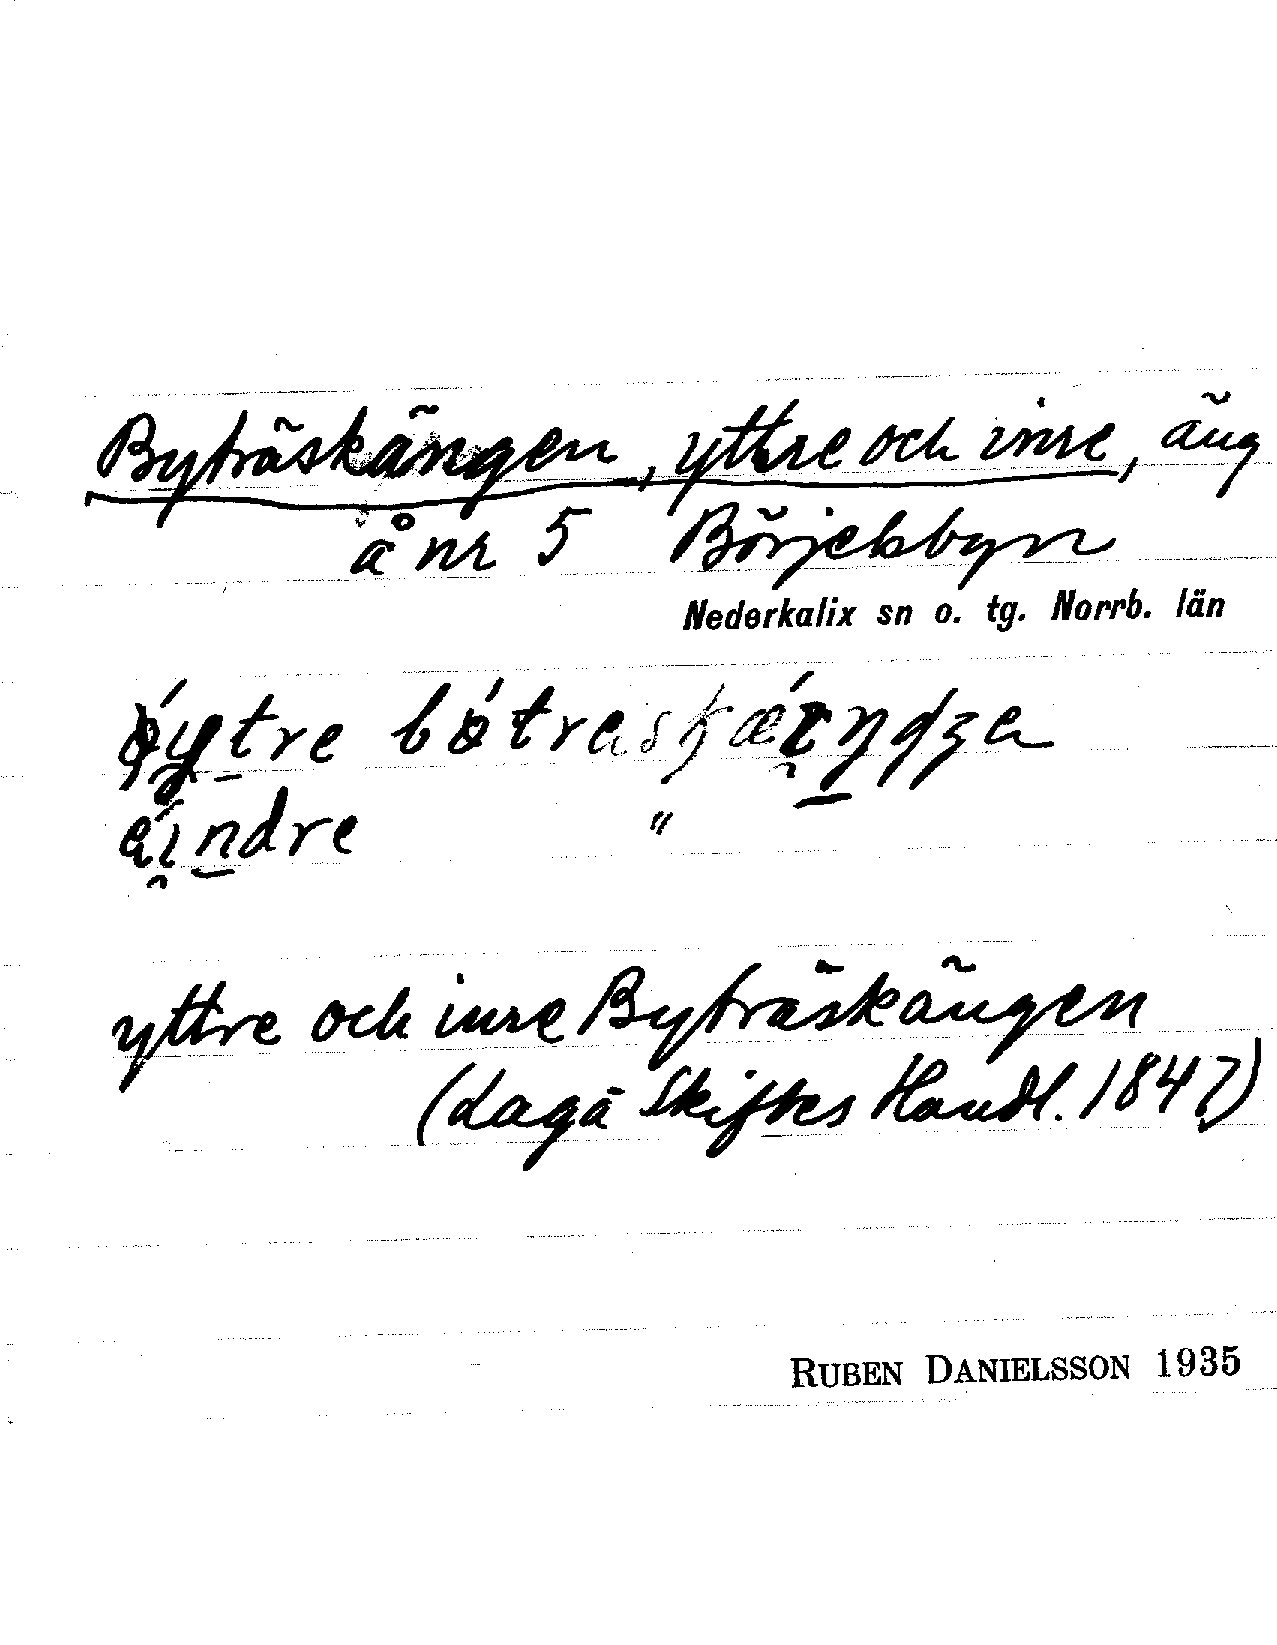 Byträskängen, yttre och inre, äng
å nr 5 Börjelsbyn
Nederkalix sn o. tg. Norrb. län
"
yttre och inre Byträskängen
(Laga Skiftes Handl. 1847)
RUBEN DANIELSSON 1935